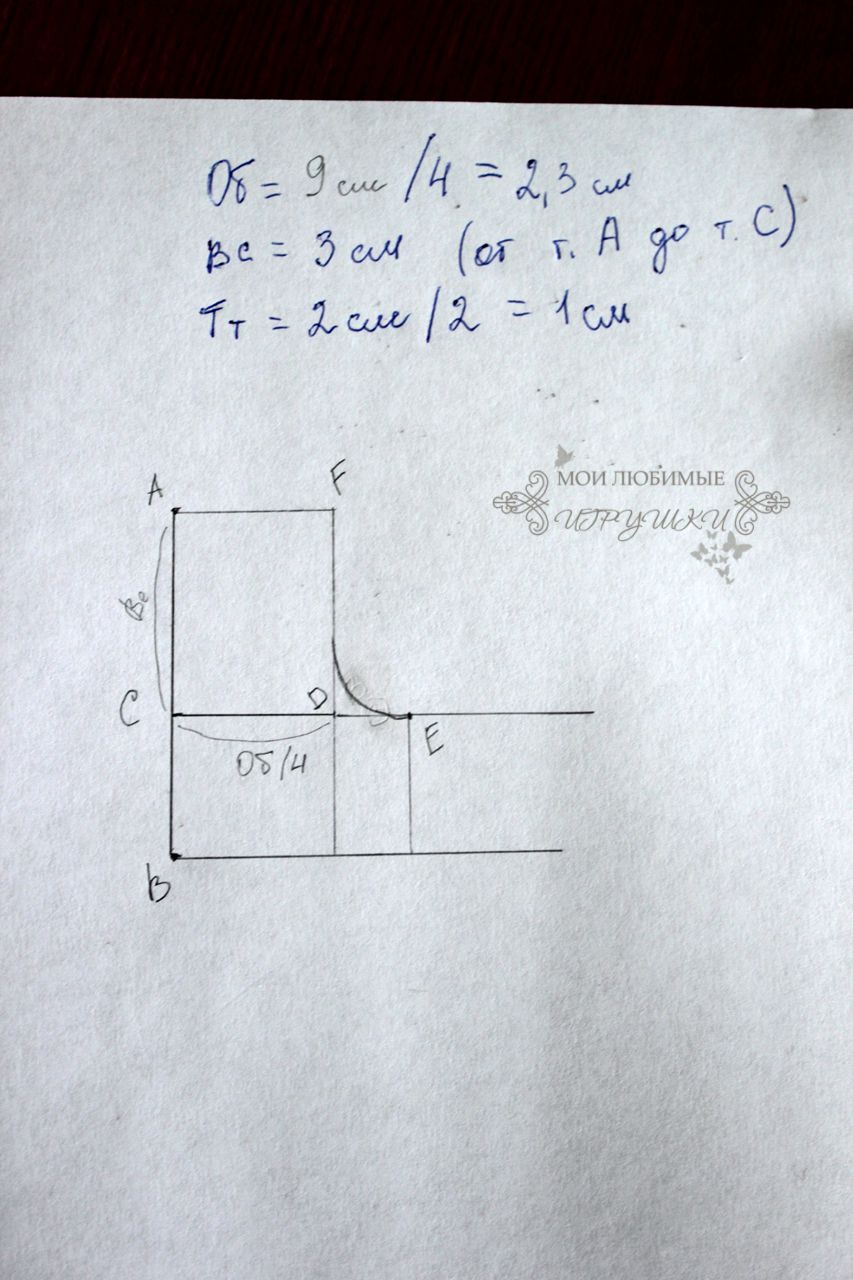 Об = 9 см /4 = 2,3 см
Вс = 3 см (от т. А до т. С)
Тт = 2 см /2 = 1 см
A
F
МОИ ЛЮБИМЫЕ
ИГРУШКИ
Вс
C
D
E
Об/4
B